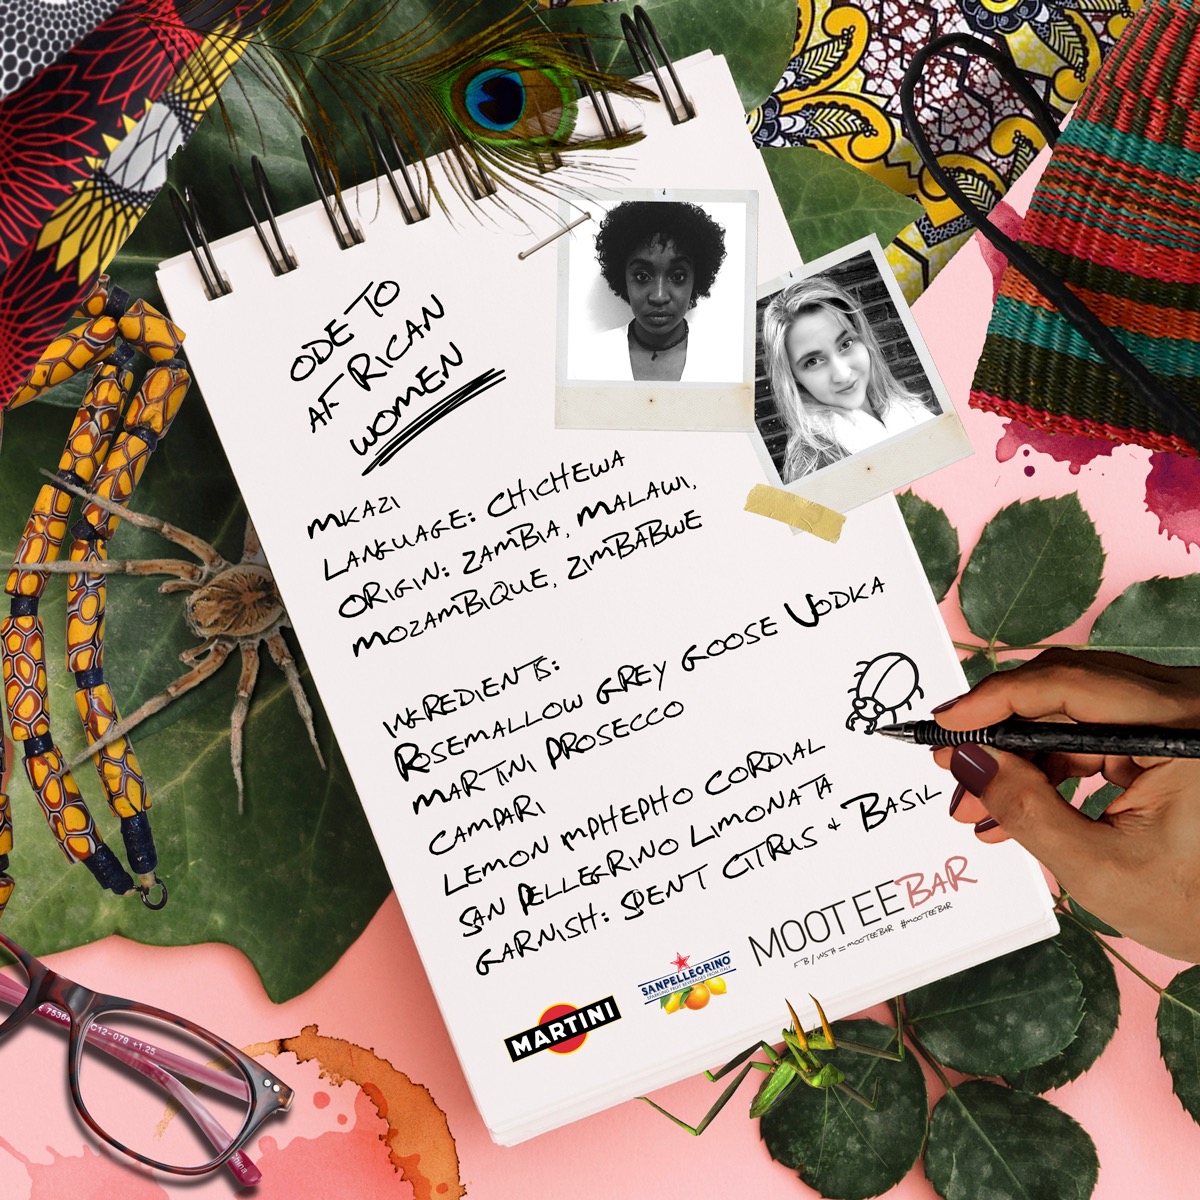 ODE TO
AFRICAN
WOMEN
MKAZI
LANGUAGE: CHICHEWA
ORIGIN: ZAMBIA, MALAWI,
MOZAMBIQUE, ZIMBABWE
INGREDIENTS:
ROSEMALLOW GREY GOOSE VODKA
MARTINI PROSECCO
CAMPARI
LEMON MPHEPHO CORDIAL
SAN PELLEGRINO LIMONATA
GARNISH: SPENT CITRUS + BASIL
MOOTEEBAR
FB/INSTA = MOOTEEBAR #MOOTEEBAR
SANPELLEGRINO
SPARKLING FRUIT BEVERAGES FROM ITALY
MARTINI
C12-079 +1.25
China